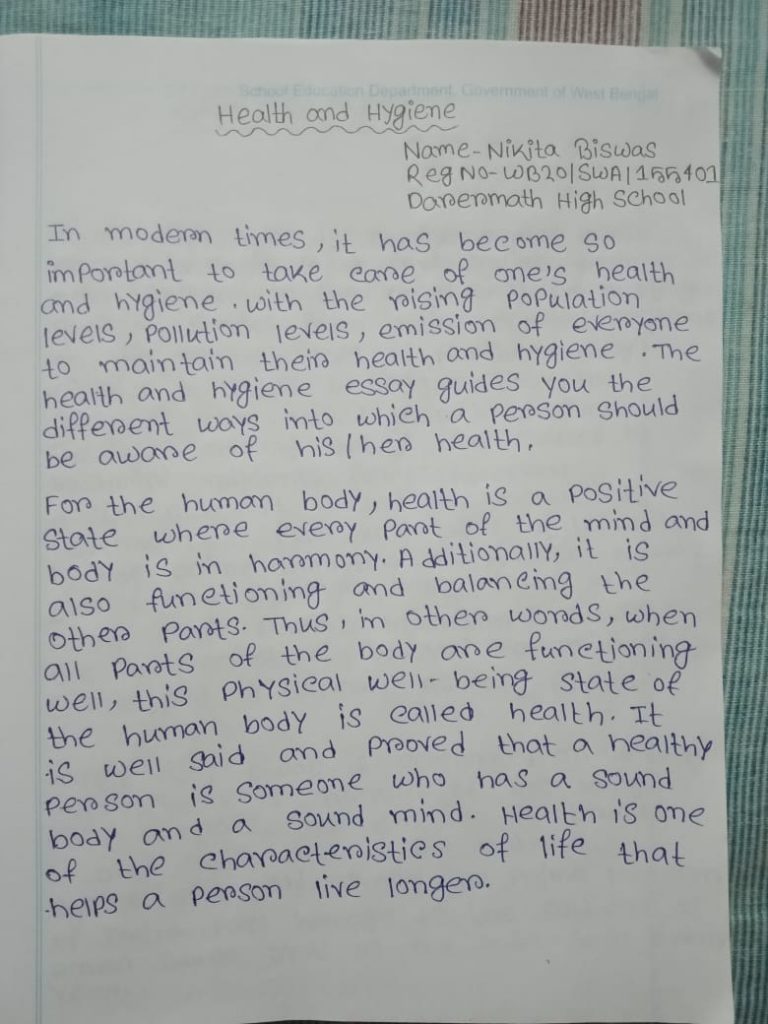 School Education Department, Government of West Bengal
Health and Hygiene
Name- Nikita Biswas
Reg No- WB20/SWA/155401
Darermath High School
In modern times, it has become so
important to take care of one's health
and hygiene. with the rising population
levels, pollution levels, emission of everyone
to maintain their health and hygiene. The
health and hygiene essay guides you the
different ways into which a person should
be aware of his/her health.
For the human body, health is a positive
state where every part of the mind and
body is in harmony. Additionally, it is
also functioning and balancing the
other parts. Thus, in other words, when
all parts of the body are functioning
well, this physical well-being state of
the human body is called health. It
is well said and proved that a healthy
person is someone who has a sound
body and a sound mind. Health is one
of the characteristics of life that
helps a person live longer.